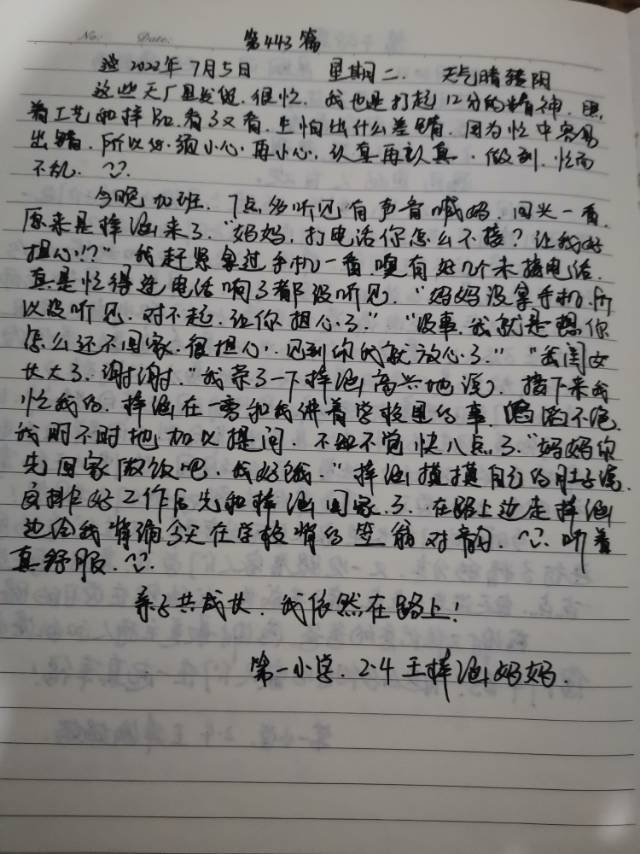 No: Date: 第443篇
2022年7月5日 星期二. 天气晴转阴
这些天厂里发货.很忙.我也是打起12分的精神.照
着工艺和样品.看了又看.生怕出什么差错.因为忙中容易
出错.所以必须小心.再小心.认真再认真.做到.忙而
不乱.
今晚加班.7点多听见有声音喊妈.回头一看.
原来是梓涵来了."妈妈.打电话你怎么不接?让我好
担心!?"我赶紧拿过手机一看噢有好几个未接电话.
真是忙得连电话响了都没听见."妈妈没拿手机.所
以没听见.对不起.让你担心了.""没事.我就是想你
怎么还不回家.很担心.见到你我就放心了.""我闺女
长大了.谢谢."我亲了一下梓涵高兴地说.接下来我
忙我的.梓涵在一旁和我讲着学校里的事.滔滔不绝.
我时不时地加以提问.不知不觉快八点了."妈妈你
先回家做饭吧.我好饿."梓涵摸摸自己的肚子说.
安排好工作后先和梓涵回家了.在路上边走梓涵
边给我背诵今天在学校背的笠翁对韵.听着
真舒服.
亲子共成长.我依然在路上!
第一小学.2.4王梓涵妈妈.